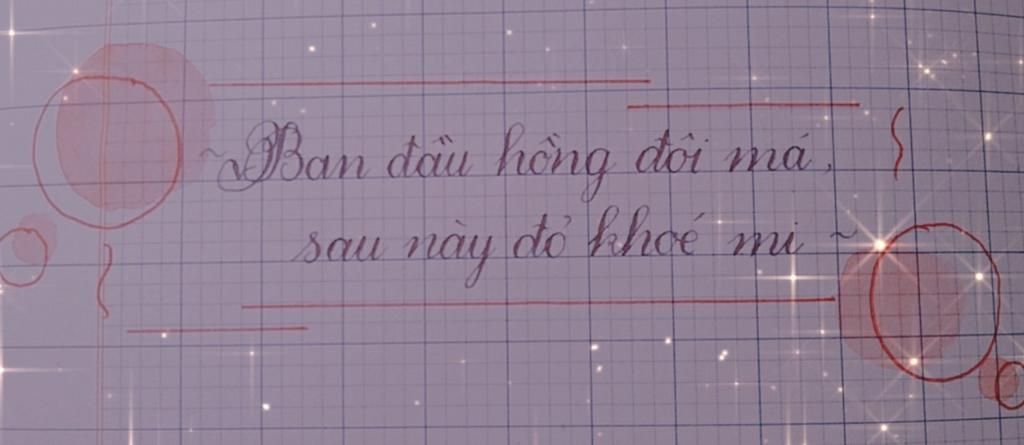 ~ Ban đầu hồng đôi má,
sau này đỏ khoé mi ~